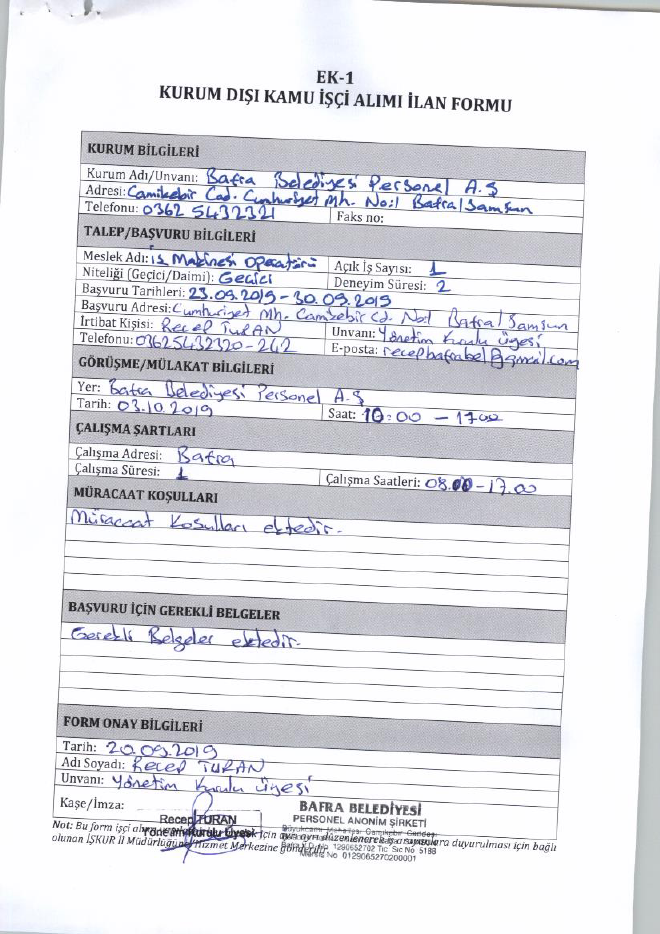 EK-1
KURUM DIŞI KAMU İŞÇİ ALIMI İLAN FORMU
KURUM BİLGİLERİ
Kurum Adı/Unvanı: Bafra Belediyesi Personel A.Ş
Adresi: Camikebir Cad. Cumhuriyet Mh. No:1 Bafra/Samsun
Telefonu: 0362 5432321 Faks no:
TALEP/BAŞVURU BİLGİLERİ
Meslek Adı: iş Makinesi operatörü Açık İş Sayısı: 1
Niteliği (Geçici/Daimi): Geçici Deneyim Süresi: 2
Başvuru Tarihleri: 23.09.2019 - 30.09.2019
Başvuru Adresi: Cumhuriyet Mh. Camikebir Cd. No:1 Bafra/Samsun
İrtibat Kişisi: Recep TURAN Unvanı: Yönetim Kurulu üyesi
Telefonu: 03625432320-242 E-posta: recepbafrabel@gmail.com
GÖRÜŞME/MÜLAKAT BİLGİLERİ
Yer: Bafra Belediyesi Personel A.Ş
Tarih: 03.10.2019 Saat: 10:00 - 17:00
ÇALIŞMA ŞARTLARI
Çalışma Adresi: Bafra
Çalışma Süresi: 1 Çalışma Saatleri: 08.00-17.00
MÜRACAAT KOŞULLARI
Müracaat Koşulları ektedir.
BAŞVURU İÇİN GEREKLİ BELGELER
Gerekli Belgeler ektedir.
FORM ONAY BİLGİLERİ
Tarih: 20.09.2019
Adı Soyadı: Recep TURAN
Unvanı: Yönetim Kurulu üyesi
Kaşe/İmza:
Recep TURAN
Yönetim Kurulu Üyesi
BAFRA BELEDİYESİ
PERSONEL ANONİM ŞİRKETİ
1290652702 Tic. Sic No 5188
Mersis No 0129065270200001
Not: Bu form işçi için ayrı ayrı düzenlenerek duyurulması için bağlı
olunan İŞKUR İl Müdürlüğüne/Hizmet Merkezine gönderilir.